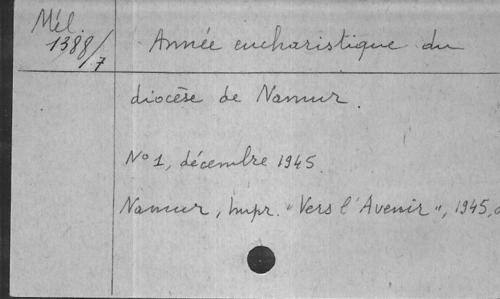 Mél.
1388/7
Année eucharistique du
diocèse de Namur.
N° 1, décembre 1945.
Namur, Impr. "Vers l'Avenir", 1945,